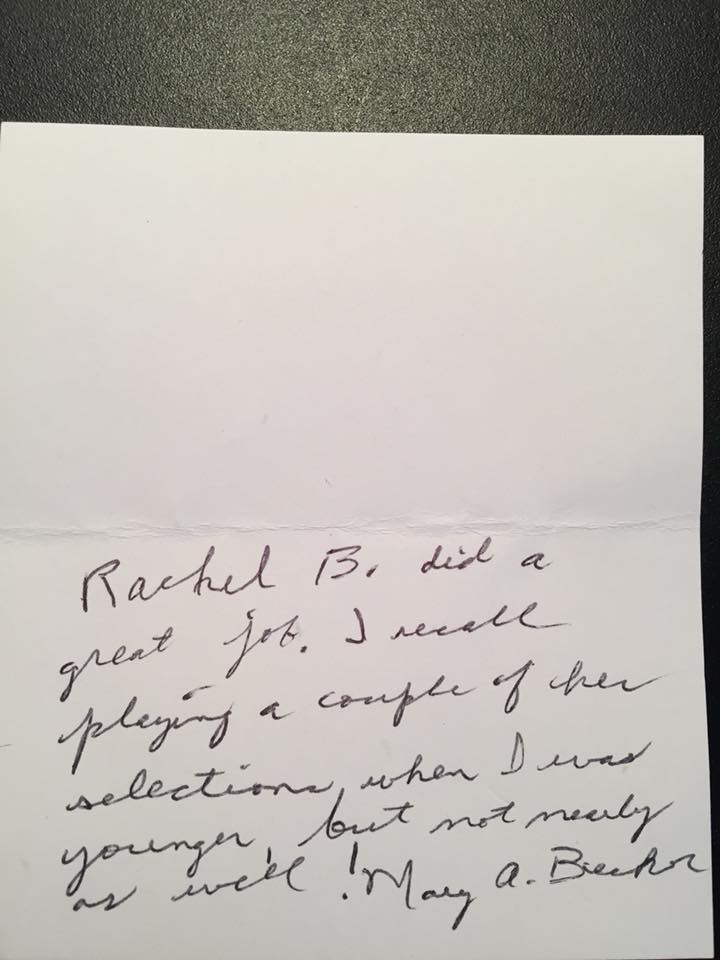 Rachel B. did a
great job. I recall
playing a couple of her
selections, when I was
younger, but not nearly
as well! Mary A.